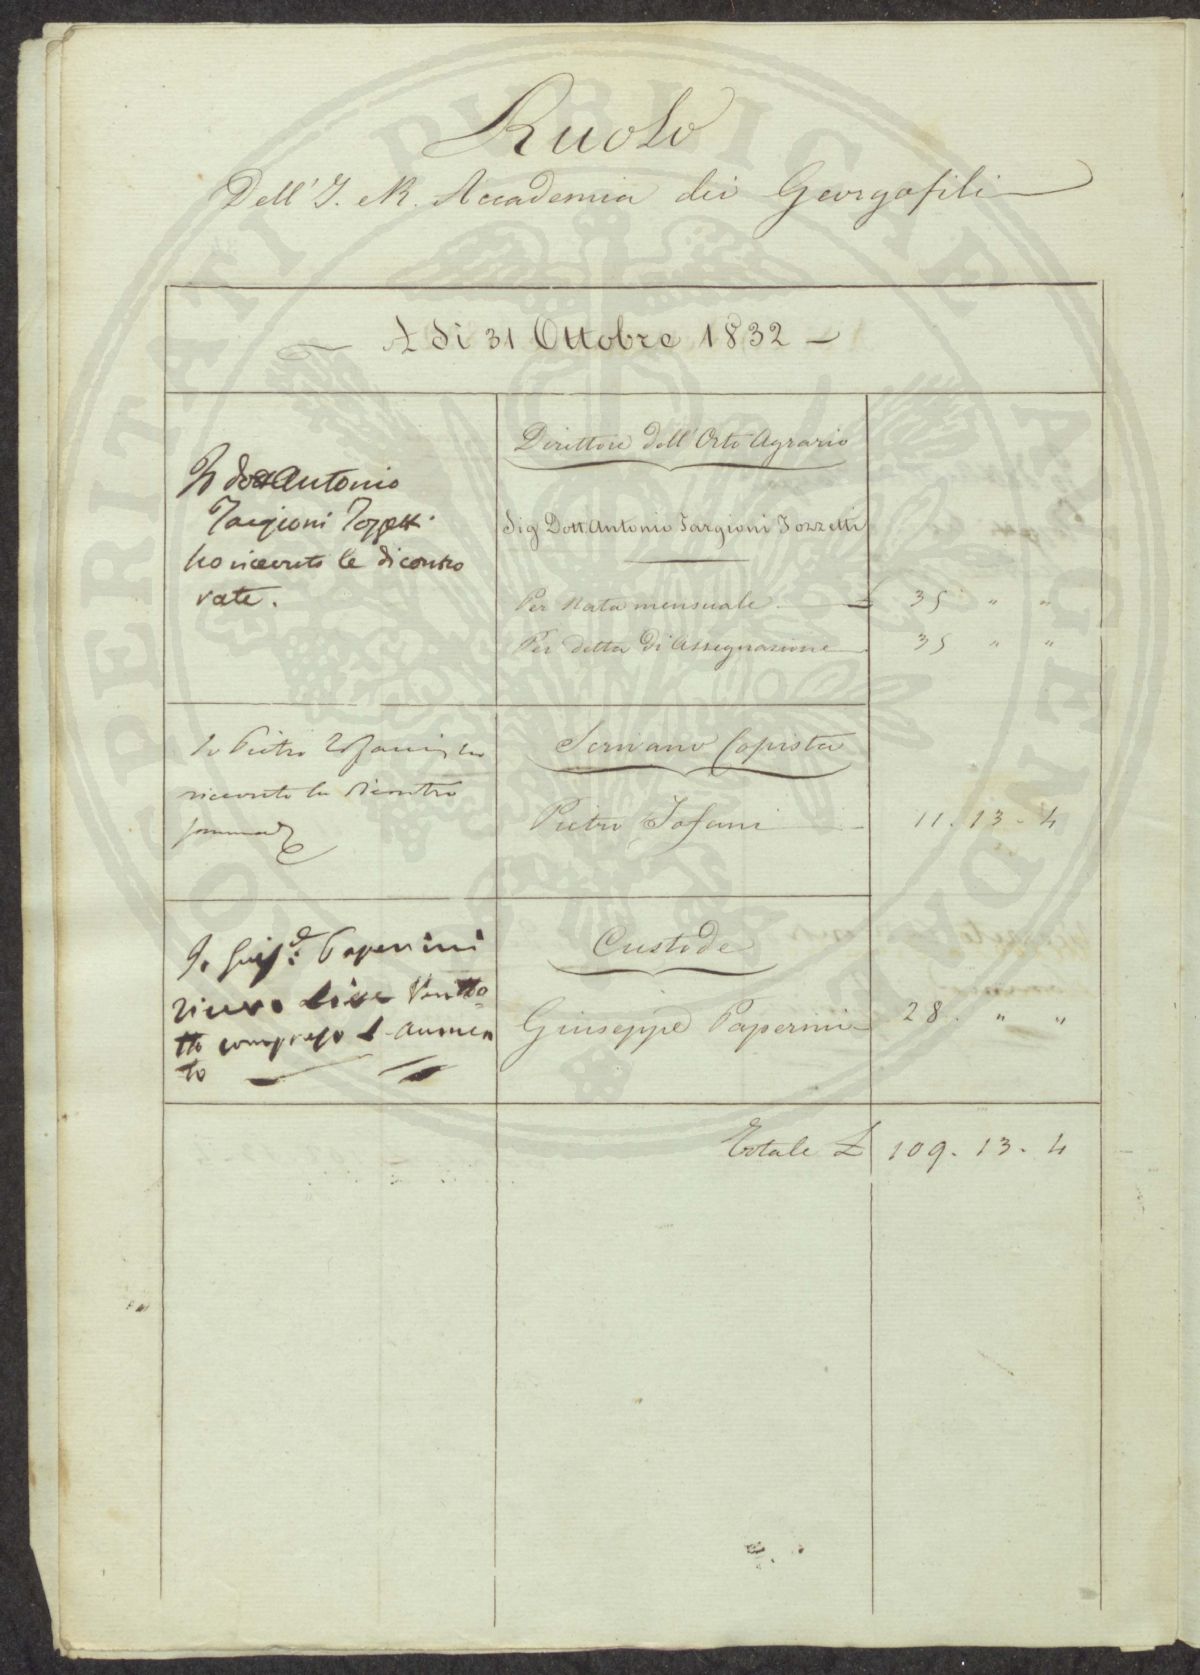 Ruolo
Dell' I. e R. Accademia dei Georgofili
A dì 31 Ottobre 1832
Io dott Antonio
Targioni Tozzetti
ho ricevuto le di contro
rate.
Direttore dell'Orto Agrario
Sig Dott. Antonio Targioni Tozzetti
Per Rata mensuale £ 35 " "
Per detta di Assegnazione 35 " "
Io Pietro Tofani ho
ricevuto la dicontro
somma
Scrivano Copista
Pietro Tofani 11. 13. 4
Io Giusᵉ: Paperini
ricevo lire Ventto=
tto compreso l'aumen
to
Custode
Giuseppe Paperini 28. " "
Totale £ 109. 13. 4
OSPERITATI PUBLICAE AUGENDAE